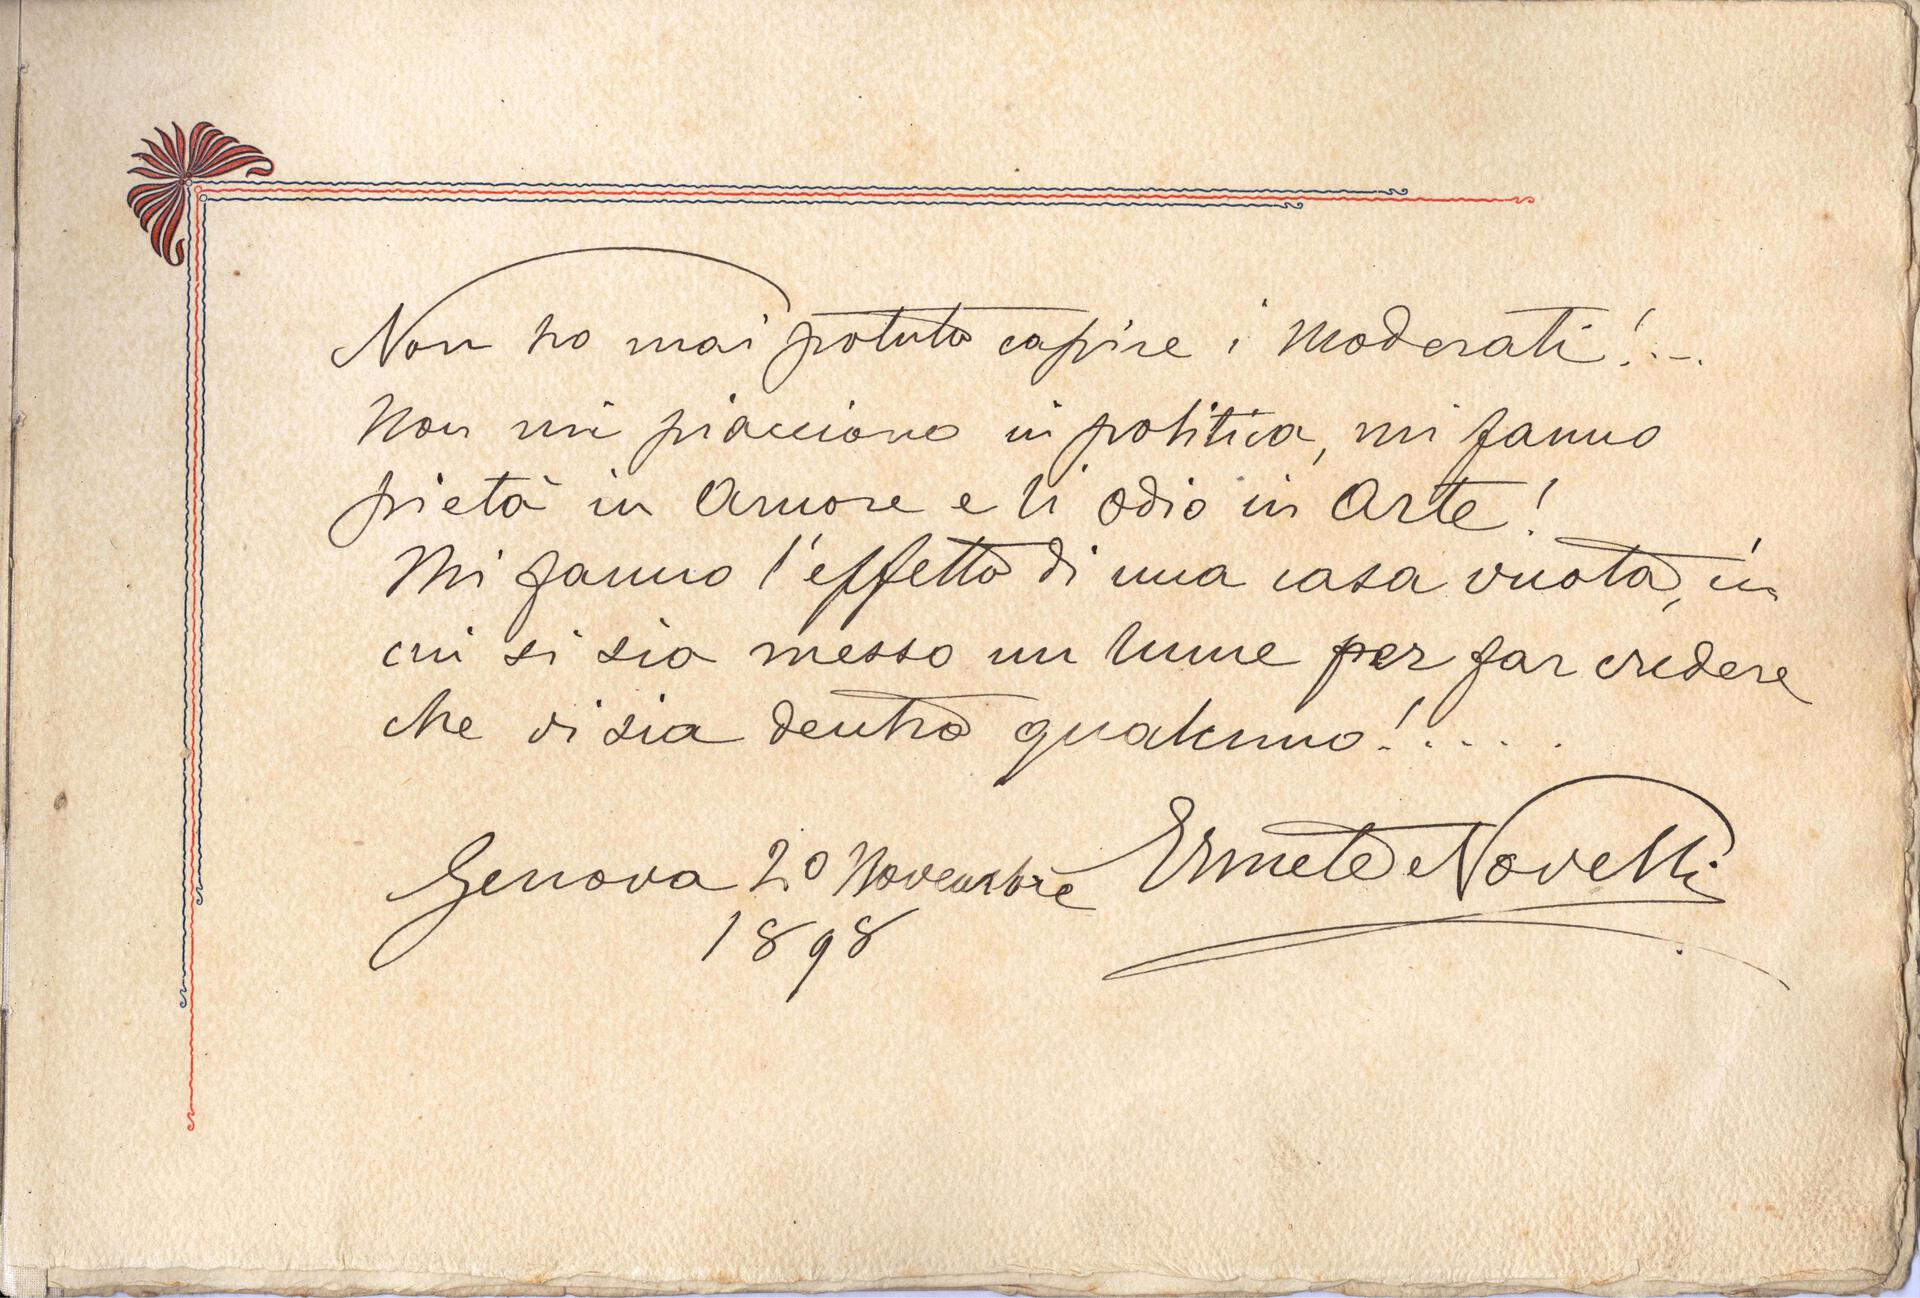 Non ho mai potuto capire i Moderati!...
Non mi piacciono in politica, mi fanno
pietà in Amore e li odio in Arte!
Mi fanno l'effetto di una casa vuota, in
cui si sia messo un lume per far credere
che vi sia dentro qualcuno!.....
Genova 20 Novembre Ermete Novelli
1898